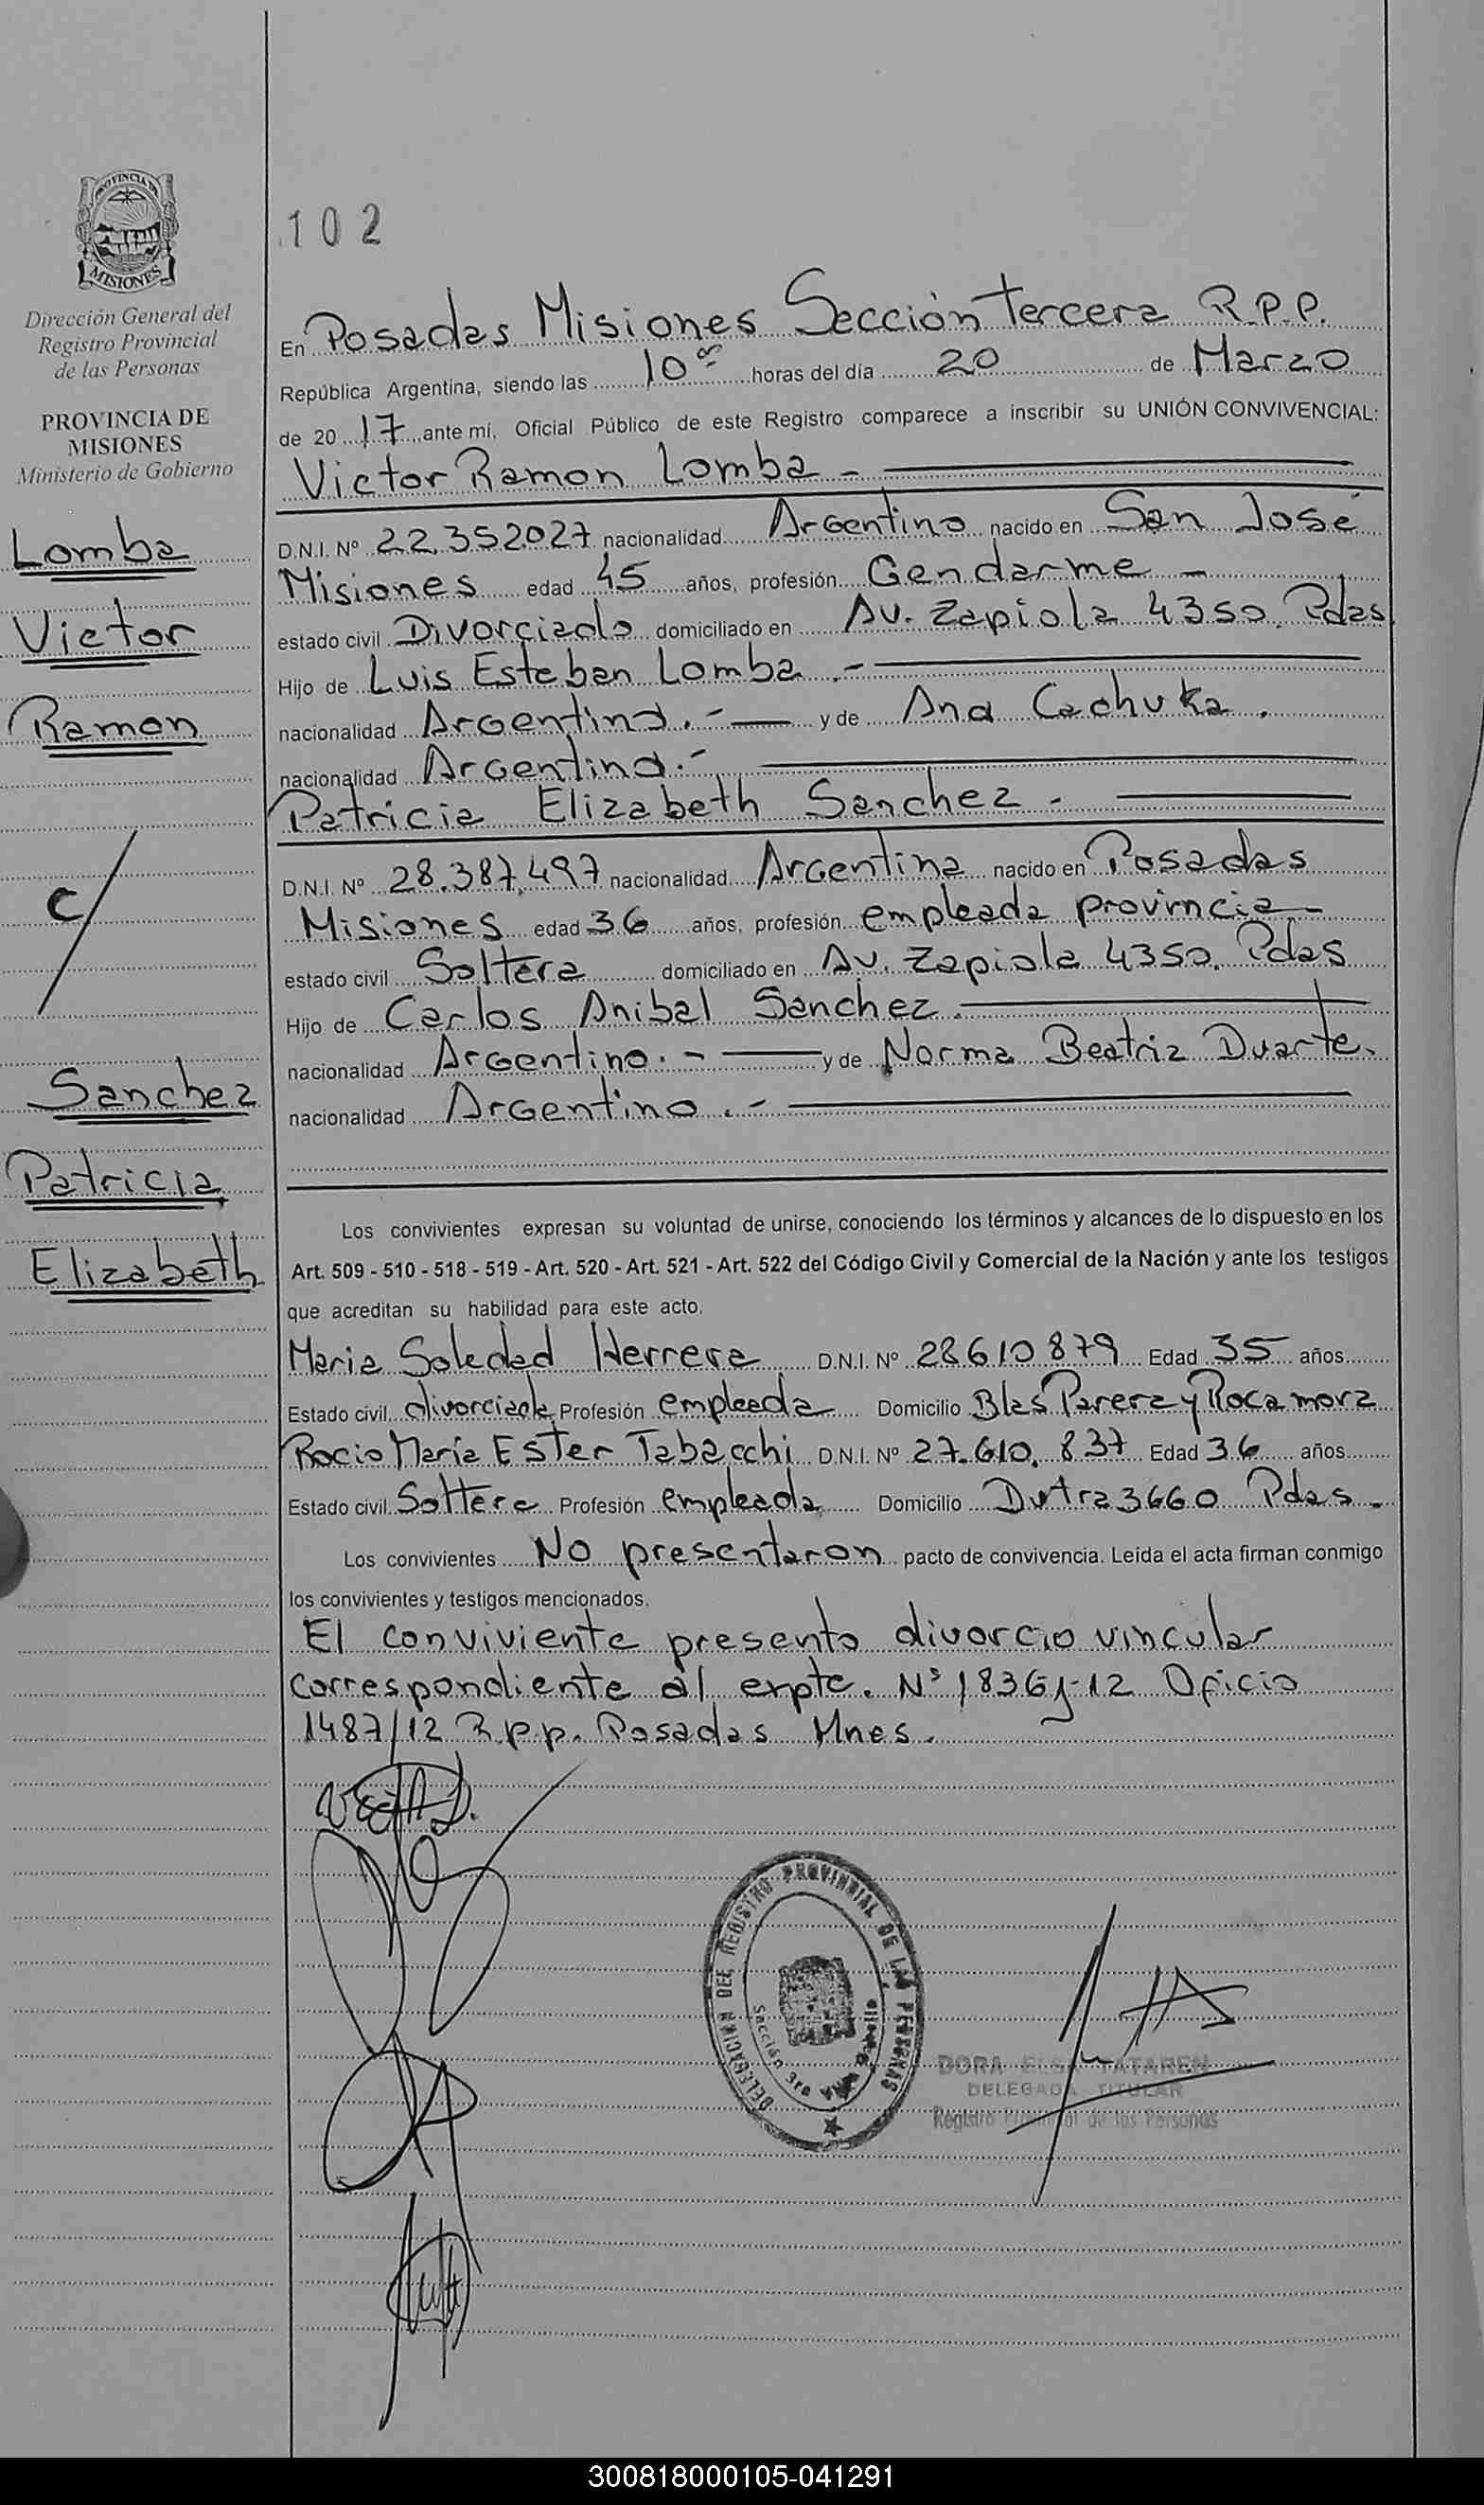 PROVINCIA DE
MISIONES
Dirección General del
Registro Provincial
de las Personas
PROVINCIA DE
MISIONES
Ministerio de Gobierno
Lomba
Victor
Ramon
c/
Sanchez
Patricia
Elizabeth
102
En Posadas Misiones Sección Tercera R.P.P.
República Argentina, siendo las 10 horas del día 20 de Marzo
de 2017 ante mí, Oficial Público de este Registro comparece a inscribir su UNIÓN CONVIVENCIAL:
Victor Ramon Lomba -
D.N.I. Nº 22.352.027 nacionalidad Argentino nacido en San José
Misiones edad 45 años, profesión Gendarme -
estado civil Divorciado domiciliado en Av. Zapiola 4350. Pdas
Hijo de Luis Esteban Lomba .-
nacionalidad Argentino. - y de Ana Cachuka .
nacionalidad Argentina. -
Patricia Elizabeth Sanchez -
D.N.I. Nº 28.387.497 nacionalidad Argentina nacido en Posadas
Misiones edad 36 años, profesión empleada provincia -
estado civil Soltera domiciliado en Av. Zapiola 4350. Pdas
Hijo de Carlos Anibal Sanchez.
nacionalidad Argentino. - y de Norma Beatriz Duarte.
nacionalidad Argentino .-
Los convivientes expresan su voluntad de unirse, conociendo los términos y alcances de lo dispuesto en los
Art. 509 - 510 - 518 - 519 - Art. 520 - Art. 521 - Art. 522 del Código Civil y Comercial de la Nación y ante los testigos
que acreditan su habilidad para este acto.
Maria Soledad Herrera D.N.I. Nº 28610879 Edad 35 años
Estado civil divorciada Profesión empleada Domicilio Blas Parera y Rocamora
Rocio María Ester Tabacchi D.N.I. Nº 27.610.837 Edad 36 años
Estado civil Soltera Profesión empleada Domicilio Dutra 3660 Pdas.
Los convivientes No presentaron pacto de convivencia. Leída el acta firman conmigo
los convivientes y testigos mencionados.
El conviviente presento divorcio vincular
correspondiente al expte. Nº Oficio
1487/12 R.p.p. Posadas Mnes.
DELEGACION DEL REGISTRO PROVINCIAL DE LAS PERSONAS
Sección 3ra
DORA ELSA TATAREN
DELEGADA TITULAR
Registro Provincial de las Personas
300818000105-041291